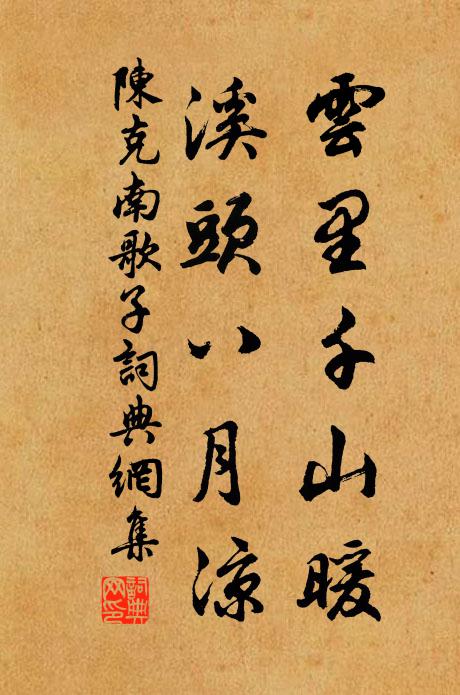 雲里千山暖
溪頭八月涼
陳克南歌子詞典網集
詞典网印